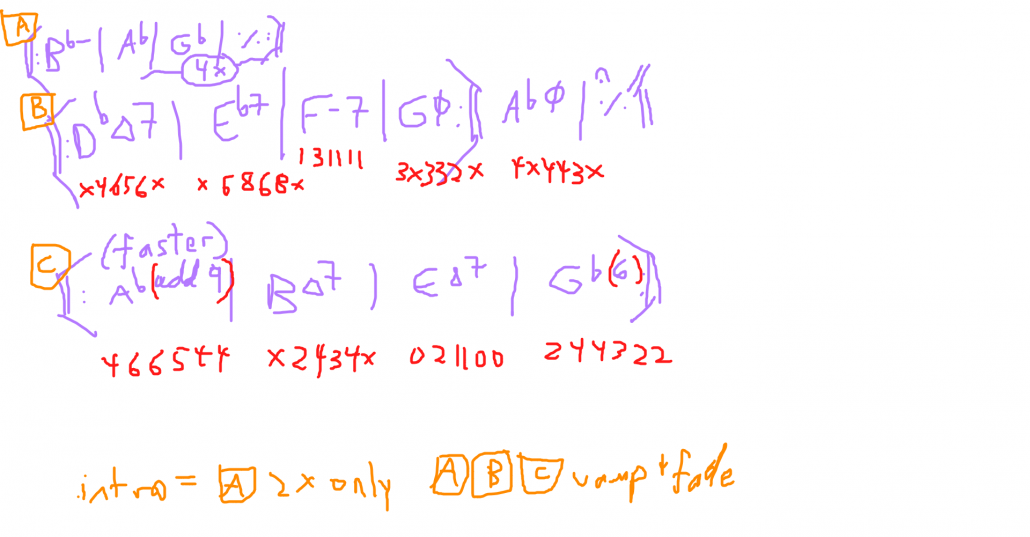 A
‖: B♭- | A♭ | G♭ | ٪ :‖
4x
B
‖: D♭Δ7 | E♭7 | F-7 | Gø :‖ A♭ø | ٪ ‖
x4656x x6868x 131111 3x332x 4x443x
C (faster)
‖: A♭(add 9) | BΔ7 | EΔ7 | G♭(6) :‖
466544 x2434x 021100 244322
intro = A 2x only A B C vamp + fade